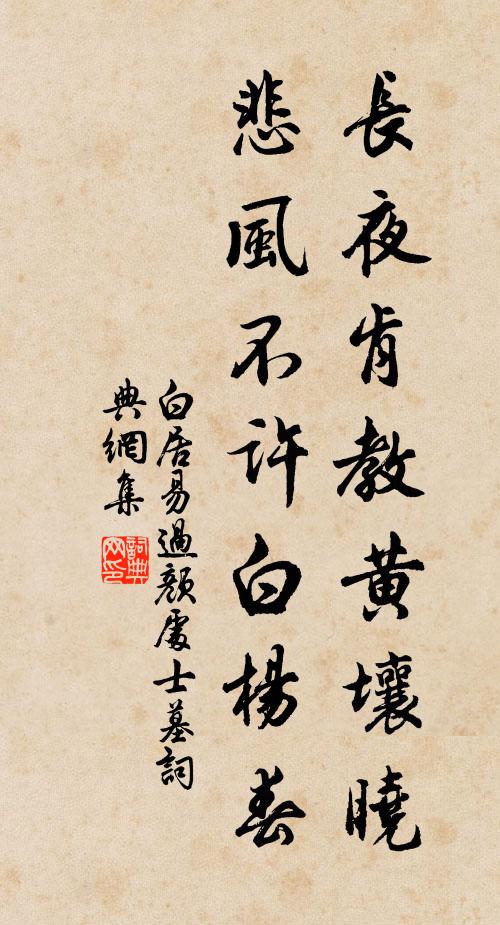 長夜肯教黃壤曉
悲風不許白楊春
白居易過顏處士墓詞
典網集
詞典
網印